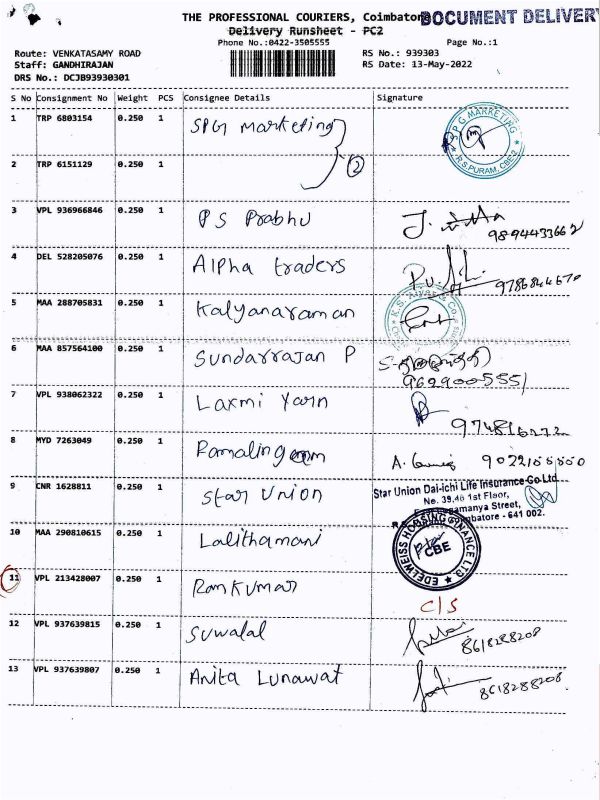 THE PROFESSIONAL COURIERS, Coimbatore
DOCUMENT DELIVERY
Delivery Runsheet - PC2
Phone No.:0422-3505555 Page No.:1
Route: VENKATASAMY ROAD RS No.: 939303
Staff: GANDHIRAJAN RS Date: 13-May-2022
DRS No.: DCJB93930301
S No Consignment No Weight PCS Consignee Details Signature
1 TRP 6803154 0.250 1 SPG Marketing
SPG MARKETING R.S.PURAM, CBE-2
2 TRP 6151129 0.250 1 (2)
3 VPL 936966846 0.250 1 PS Prabhu 9894433662
4 DEL 528205076 0.250 1 Alpha traders 9786844670
5 MAA 288705831 0.250 1 Kalyanaraman
6 MAA 857564100 0.250 1 Sundarrajan P
9629005551
7 VPL 938062322 0.250 1 Laxmi Yarn
8 MYD 7263049 0.250 1 Ramalingam
9 CNR 1628811 0.250 1 Star Union
Star Union Dai-ichi Life Insurance Co Ltd
No. 39,40 1st Floor,
Coimbatore - 641 002.
10 MAA 290810615 0.250 1 Lalithamani
EDELWEISS HOUSING FINANCE LTD CBE
11 VPL 213428007 0.250 1 Ramkumar C/S
12 VPL 937639815 0.250 1 Suwalal 8618288208
13 VPL 937639807 0.250 1 Anita Lunawat 8618288208